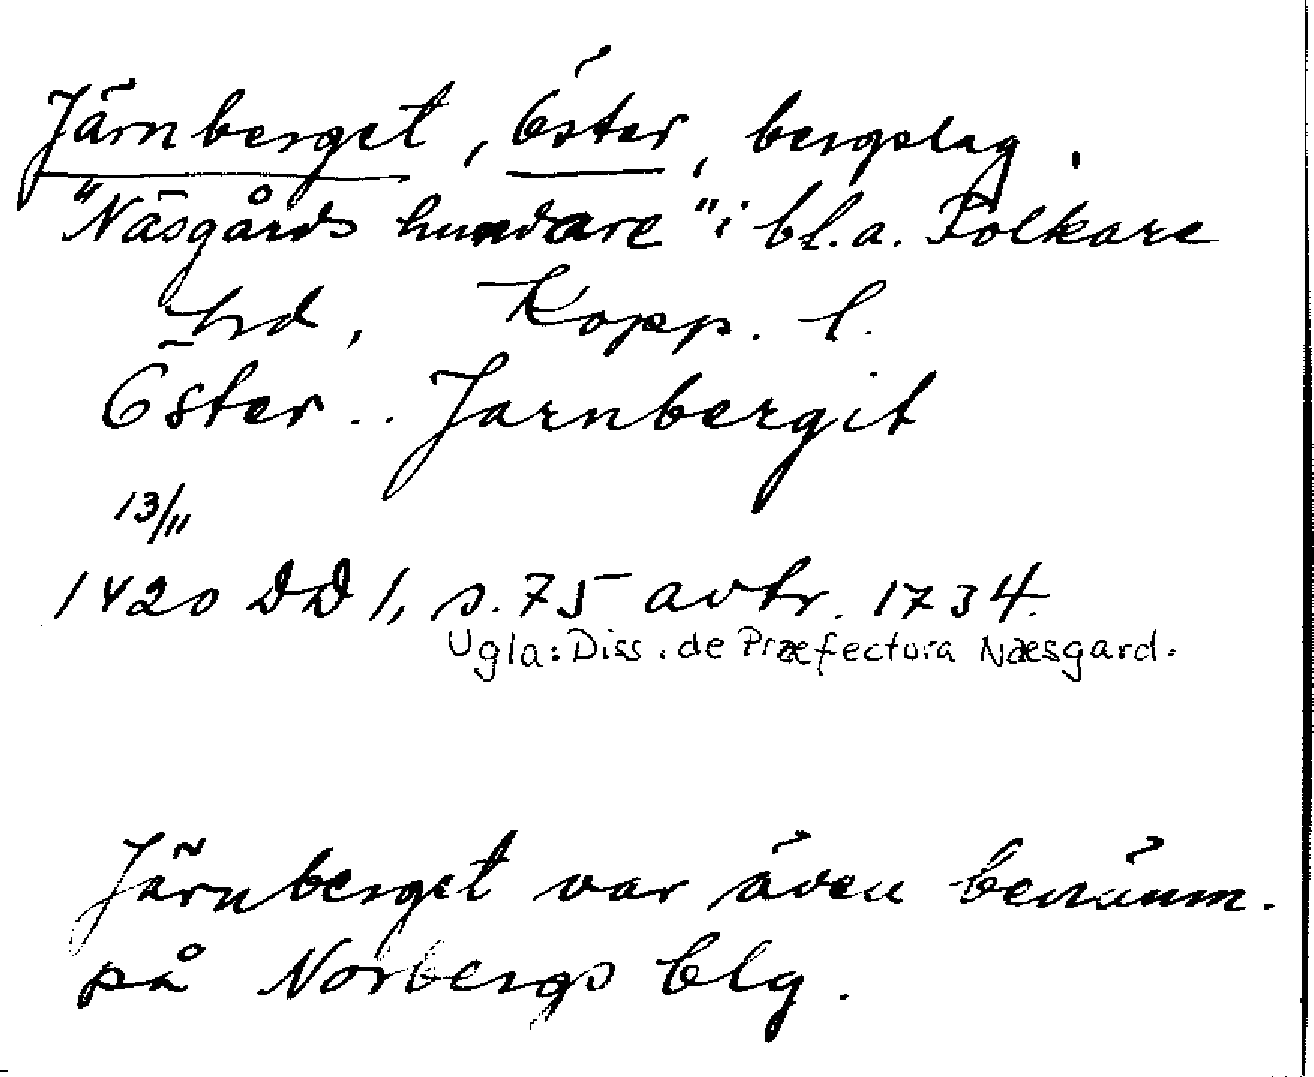 Järnberget, Öster, bergslag.
"Näsgårds hundare" i bl.a. Folkare
hd, Kopp. l.
Öster .. Jarnbergit
13/11
1420 DD 1, s. 75 avtr. 1734.
Ugla: Diss. de Præfectura Næsgard.
Järnberget var även benämn.
på Norbergs blg.